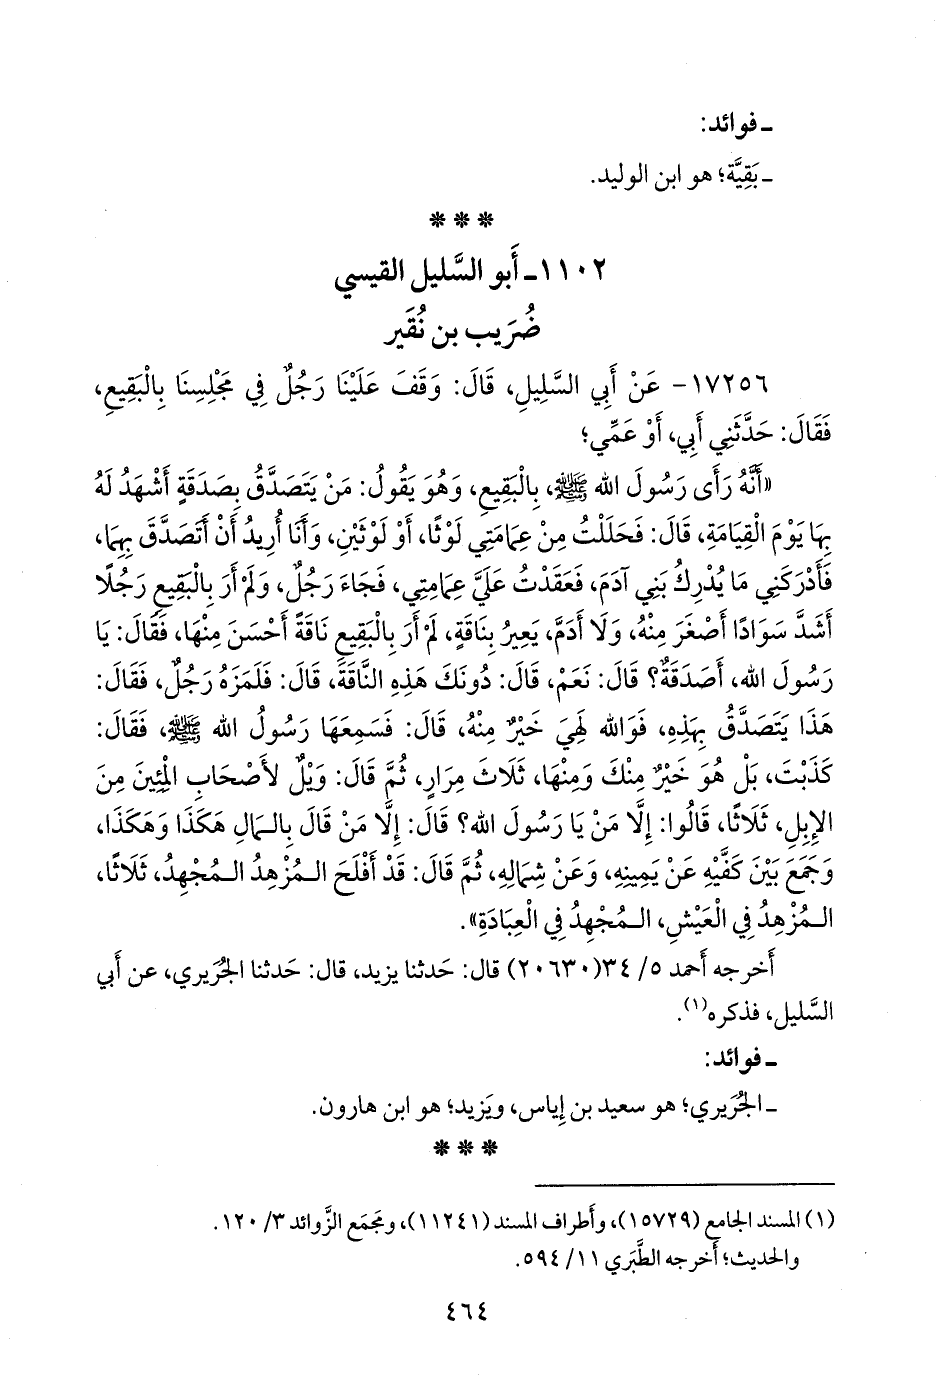 ـ فوائد:
ـ بَقِيَّة؛ هو ابن الوليد.
* * *
١١٠٢ـ أَبو السَّليل القيسي
ضُرَيب بن نُقَير
١٧٢٥٦- عَنْ أَبِي السَّلِيلِ، قَالَ: وَقَفَ عَلَيْنَا رَجُلٌ فِي مَجْلِسِنَا بِالْبَقِيعِ،
فَقَالَ: حَدَّثَنِي أَبِي، أَوْ عَمِّي؛
«أَنَّهُ رَأَى رَسُولَ الله ﷺ، بِالْبَقِيعِ، وَهُوَ يَقُولُ: مَنْ يَتَصَدَّقُ بِصَدَقَةٍ أَشْهَدُ لَهُ
بِهَا يَوْمَ الْقِيَامَةِ، قَالَ: فَحَلَلْتُ مِنْ عِمَامَتِي لَوْثًا، أَوْ لَوْثَيْنِ، وَأَنَا أُرِيدُ أَنْ أَتَصَدَّقَ بِهِمَا،
فَأَدْرَكَنِي مَا يُدْرِكُ بَنِي آدَمَ، فَعَقَدْتُ عَلَيَّ عِمَامَتِي، فَجَاءَ رَجُلٌ، وَلَمْ أَرَ بِالْبَقِيعِ رَجُلًا
أَشَدَّ سَوَادًا أَصْغَرَ مِنْهُ، وَلَا أَدَمَّ، يَعِيرُ بِنَاقَةٍ، لَمْ أَرَ بِالْبَقِيعِ نَاقَةً أَحْسَنَ مِنْهَا، فَقَالَ: يَا
رَسُولَ الله، أَصَدَقَةٌ؟ قَالَ: نَعَمْ، قَالَ: دُونَكَ هَذِهِ النَّاقَةَ، قَالَ: فَلَمَزَهُ رَجُلٌ، فَقَالَ:
هَذَا يَتَصَدَّقُ بِهَذِهِ، فَوَالله لَهِيَ خَيْرٌ مِنْهُ، قَالَ: فَسَمِعَهَا رَسُولُ الله ﷺ، فَقَالَ:
كَذَبْتَ، بَلْ هُوَ خَيْرٌ مِنْكَ وَمِنْهَا، ثَلَاثَ مِرَارٍ، ثُمَّ قَالَ: وَيْلٌ لأَصْحَابِ الْمِئِينَ مِنَ
الإِبِلِ، ثَلَاثًا، قَالُوا: إِلَّا مَنْ يَا رَسُولَ الله؟ قَالَ: إِلَّا مَنْ قَالَ بِالـمَالِ هَكَذَا وَهَكَذَا،
وَجَمَعَ بَيْنَ كَفَّيْهِ عَنْ يَمِينِهِ، وَعَنْ شِمَالِهِ، ثُمَّ قَالَ: قَدْ أَفْلَحَ الـمُزْهِدُ الـمُجْهِدُ، ثَلَاثًا،
الـمُزْهِدُ فِي الْعَيْشِ، الـمُجْهِدُ فِي الْعِبَادَةِ».
أَخرجه أَحمد ٥/ ٣٤(٢٠٦٣٠) قال: حَدثنا يزيد، قال: حَدثنا الجُرَيري، عن أَبي
السَّليل، فذكره(١).
ـ فوائد:
ـ الجُرَيري؛ هو سعيد بن إِياس، ويَزيد؛ هو ابن هارون.
* * *
(١) المسند الجامع (١٥٧٢٩)، وأَطراف المسند (١١٢٤١)، ومَجمَع الزَّوائد ٣/ ١٢٠.
والحديث؛ أَخرجه الطَّبَري ١١/ ٥٩٤.
٤٦٤